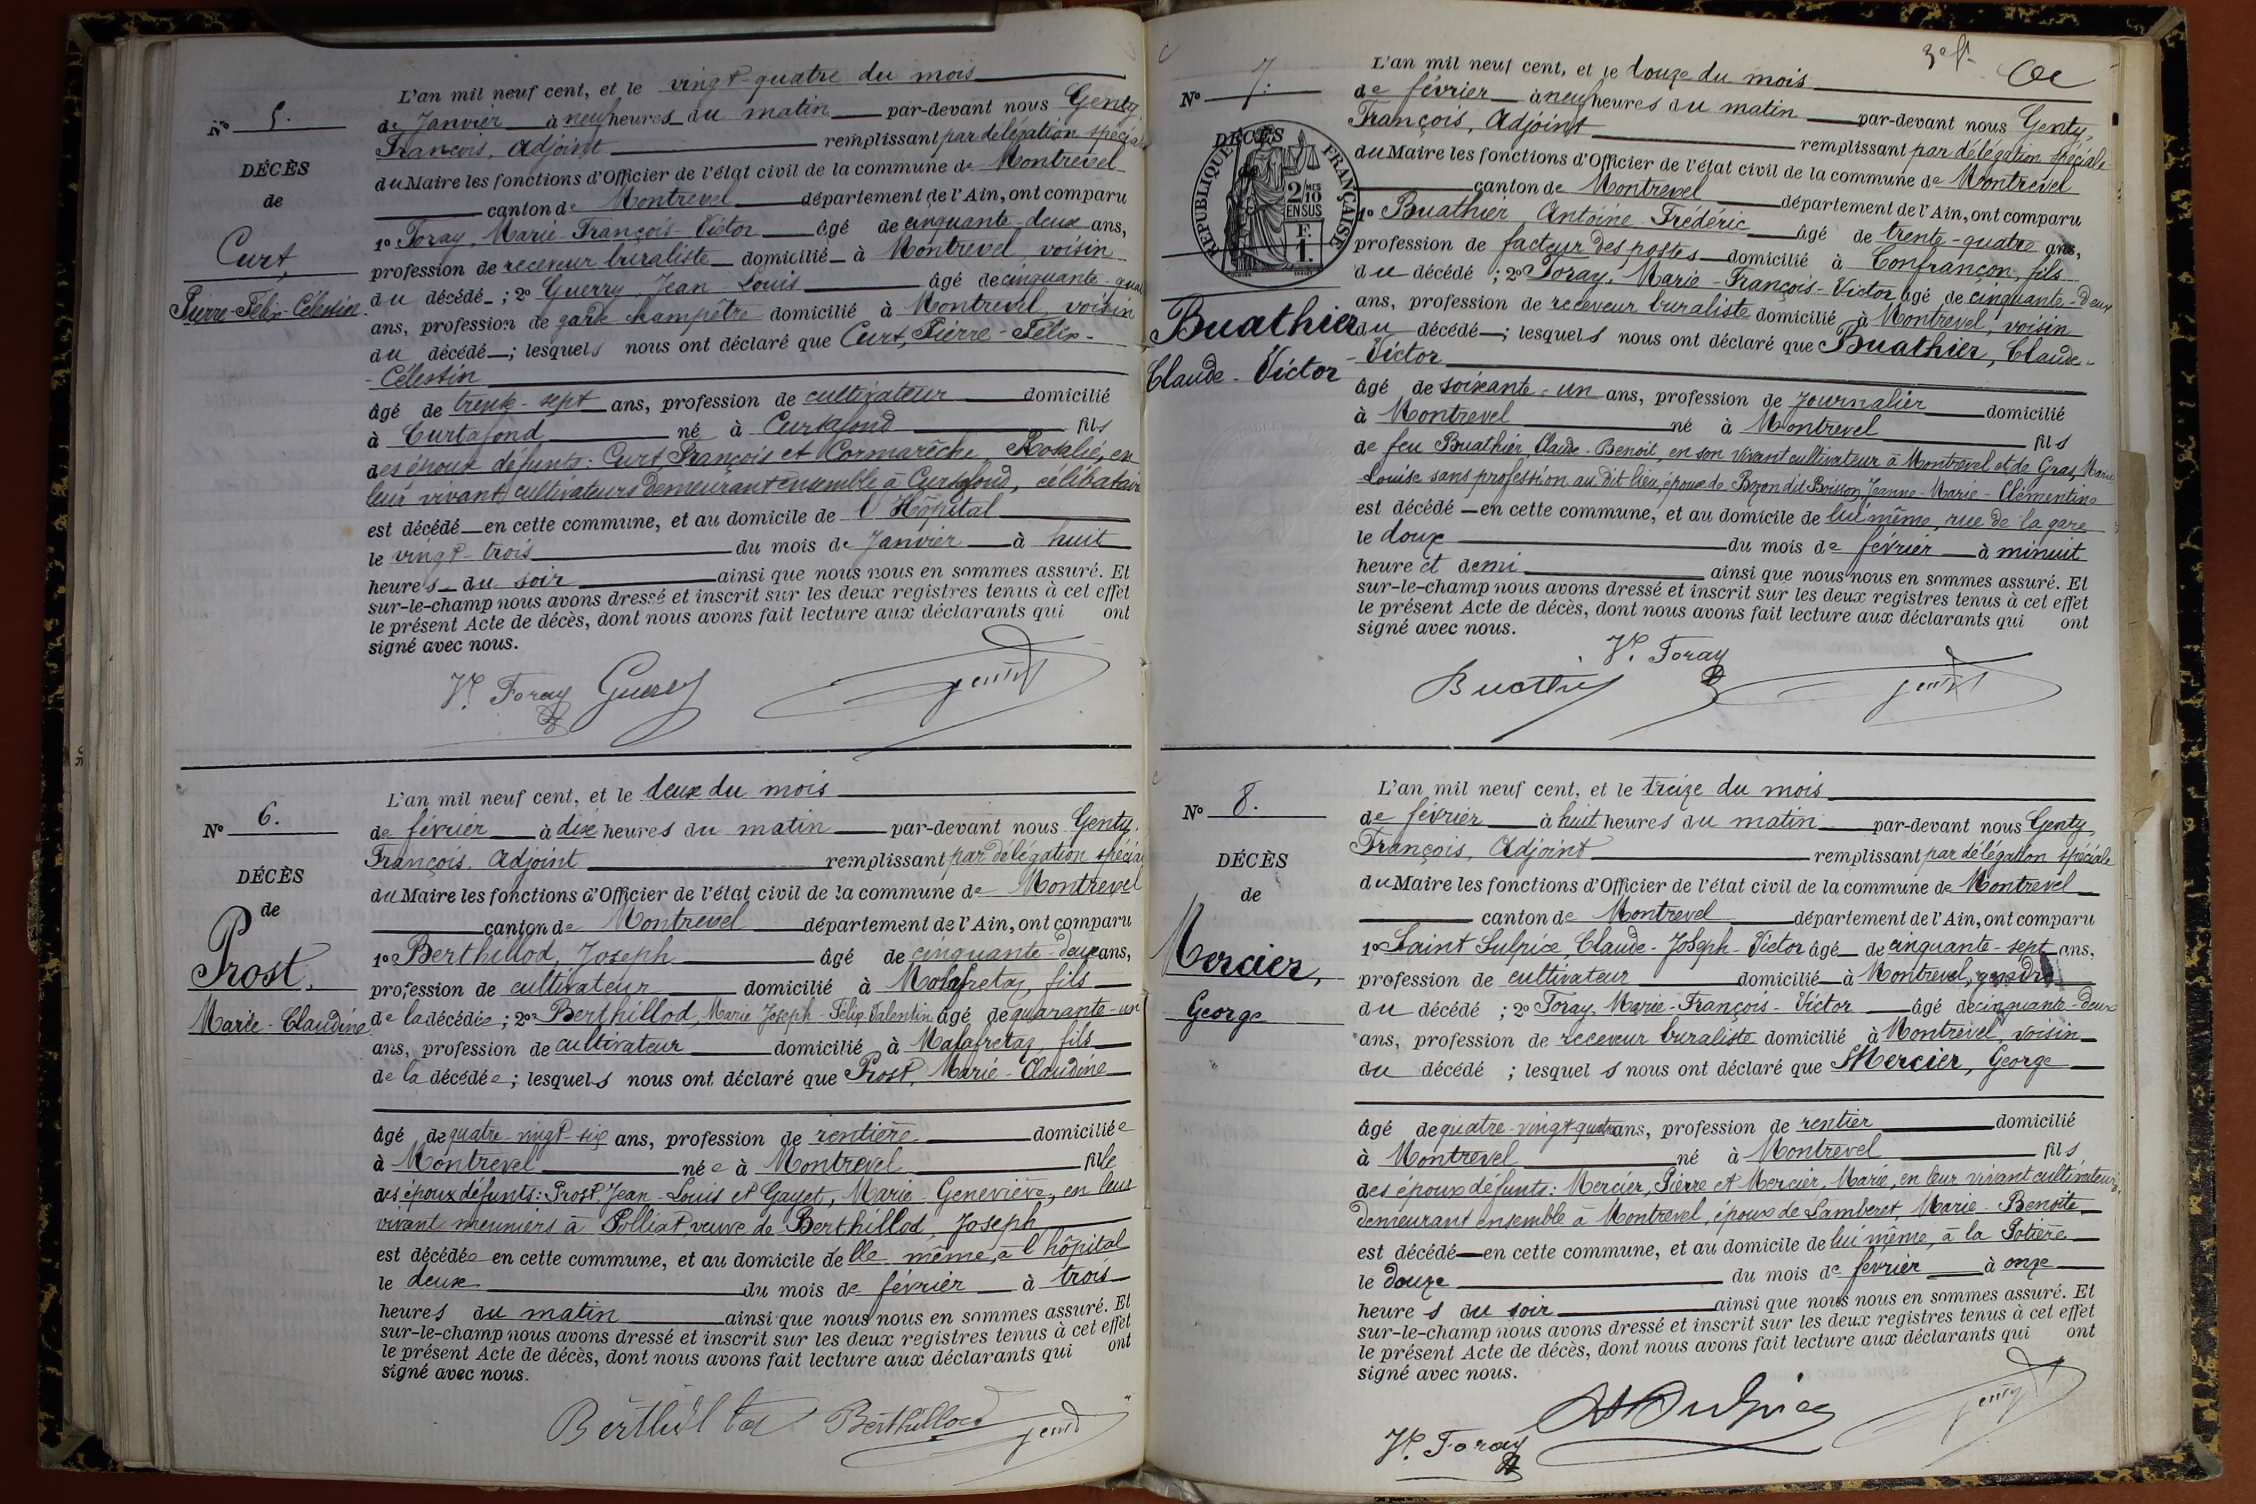 L'an mil neuf cent, et le vingt-quatre du mois
N° 5.
de Janvier à neuf heures du matin par-devant nous Genty,
François, Adjoint remplissant par délégation
DÉCÈS
du Maire les fonctions d'Officier de l'état civil de la commune de Montrevel
de
canton de Montrevel département de l'Ain, ont comparu
1° Foray, Marie-François-Victor âgé de cinquante-deux ans,
Curt,
profession de receveur buraliste domicilié à Montrevel, voisin
Pierre-Félix-Célestin.
du décédé ; 2° Guerry, Jean-Louis âgé de cinquante
ans, profession de garde champêtre domicilié à Montrevel, voisin
du décédé ; lesquels nous ont déclaré que Curt, Pierre-Félix-
-Célestin
âgé de trente-sept ans, profession de cultivateur domicilié
à Curtafond né à Curtafond fils
des époux défunts : Curt, François et Cormarêche, Rosalie, en
leur vivant cultivateurs demeurant ensemble à Curtafond, célibataire
est décédé en cette commune, et au domicile de l'Hôpital
le vingt-trois du mois de Janvier à huit
heures du soir ainsi que nous nous en sommes assuré. Et
sur-le-champ nous avons dressé et inscrit sur les deux registres tenus à cet effet
le présent Acte de décès, dont nous avons fait lecture aux déclarants qui ont
signé avec nous.
Vr. Foray Guerry Genty
L'an mil neuf cent, et le deux du mois
N° 6.
de février à dix heures du matin par-devant nous Genty,
François, Adjoint remplissant par délégation
DÉCÈS
du Maire les fonctions d'Officier de l'état civil de la commune de Montrevel
de
canton de Montrevel département de l'Ain, ont comparu
1° Berthillod, Joseph âgé de cinquante-deux ans,
Prost,
profession de cultivateur domicilié à Malafretaz, fils
Marie-Claudine
de la décédée ; 2° Berthillod, Marie Joseph-Félix Valentin âgé de quarante-un
ans, profession de cultivateur domicilié à Malafretaz, fils
de la décédée ; lesquels nous ont déclaré que Prost, Marie-Claudine
âgé de quatre-vingt-six ans, profession de rentière domiciliée
à Montrevel née à Montrevel fille
des époux défunts : Prost, Jean-Louis et Gayet, Marie-Geneviève, en leur
vivant meuniers à Polliat, veuve de Berthillod, Joseph
est décédée en cette commune, et au domicile d'elle même, à l'hôpital
le deux du mois de février à trois
heures du matin ainsi que nous nous en sommes assuré. Et
sur-le-champ nous avons dressé et inscrit sur les deux registres tenus à cet effet
le présent Acte de décès, dont nous avons fait lecture aux déclarants qui ont
signé avec nous.
Berthillod Berthillod Genty
3e ft.
L'an mil neuf cent, et le douze du mois
N° 7.
de février à neuf heures du matin par-devant nous Genty,
François, Adjoint remplissant par délégation spéciale
DÉCÈS
de
RÉPUBLIQUE FRANÇAISE
2/10 MES
EN SUS
F.
1.
du Maire les fonctions d'Officier de l'état civil de la commune de Montrevel
canton de Montrevel département de l'Ain, ont comparu
1° Buathier, Antoine-Frédéric âgé de trente-quatre ans,
profession de facteur des postes domicilié à Confrançon, fils
du décédé ; 2° Foray, Marie-François-Victor âgé de cinquante-deux
ans, profession de receveur buraliste domicilié à Montrevel, voisin
Buathier
du décédé ; lesquels nous ont déclaré que Buathier, Claude-
Claude-Victor
-Victor
âgé de soixante-un ans, profession de journalier domicilié
à Montrevel né à Montrevel fils
de feu Buathier, Claude-Benoit, en son vivant cultivateur à Montrevel et de Gras, Marie
Louise sans profession au dit lieu, époux de Bozon dit Boisson, Jeanne-Marie-Clémentine
est décédé en cette commune, et au domicile de lui même, rue de la gare
le douze du mois de février à minuit
heure et demi ainsi que nous nous en sommes assuré. Et
sur-le-champ nous avons dressé et inscrit sur les deux registres tenus à cet effet
le présent Acte de décès, dont nous avons fait lecture aux déclarants qui ont
signé avec nous.
Vr. Foray
Buathier Genty
L'an mil neuf cent, et le treize du mois
N° 8.
de février à huit heures du matin par-devant nous Genty,
François, Adjoint remplissant par délégation spéciale
DÉCÈS
du Maire les fonctions d'Officier de l'état civil de la commune de Montrevel
de
canton de Montrevel département de l'Ain, ont comparu
1° Saint Sulpice, Claude-Joseph-Victor âgé de cinquante-sept ans,
Mercier,
profession de cultivateur domicilié à Montrevel, gendre
George
du décédé ; 2° Foray, Marie-François-Victor âgé de cinquante-deux
ans, profession de receveur buraliste domicilié à Montrevel, voisin
du décédé ; lesquels nous ont déclaré que Mercier, George
âgé de quatre-vingt-quatre ans, profession de rentier domicilié
à Montrevel né à Montrevel fils
des époux défunts : Mercier, Pierre et Mercier, Marie, en leur vivant cultivateurs,
demeurant ensemble à Montrevel, époux de Lamberet Marie-Benoite
est décédé en cette commune, et au domicile de lui même, à la Potière
le douze du mois de février à onze
heures du soir ainsi que nous nous en sommes assuré. Et
sur-le-champ nous avons dressé et inscrit sur les deux registres tenus à cet effet
le présent Acte de décès, dont nous avons fait lecture aux déclarants qui ont
signé avec nous.
St Sulpice Genty
Vr. Foray